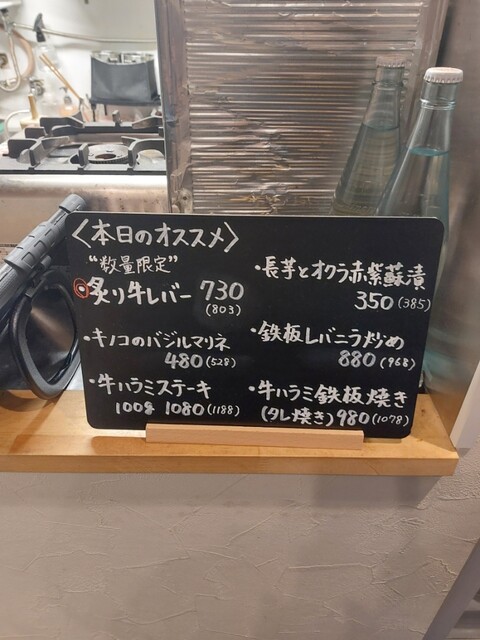 〈本日のオススメ〉
“数量限定”
炙り牛レバー 730
(803)
・キノコのバジルマリネ
480(528)
・牛ハラミステーキ
100g 1080(1188)
・長芋とオクラ赤紫蘇漬
350(385)
・鉄板レバニラ炒め
880(968)
・牛ハラミ鉄板焼き
(タレ焼き)980(1078)